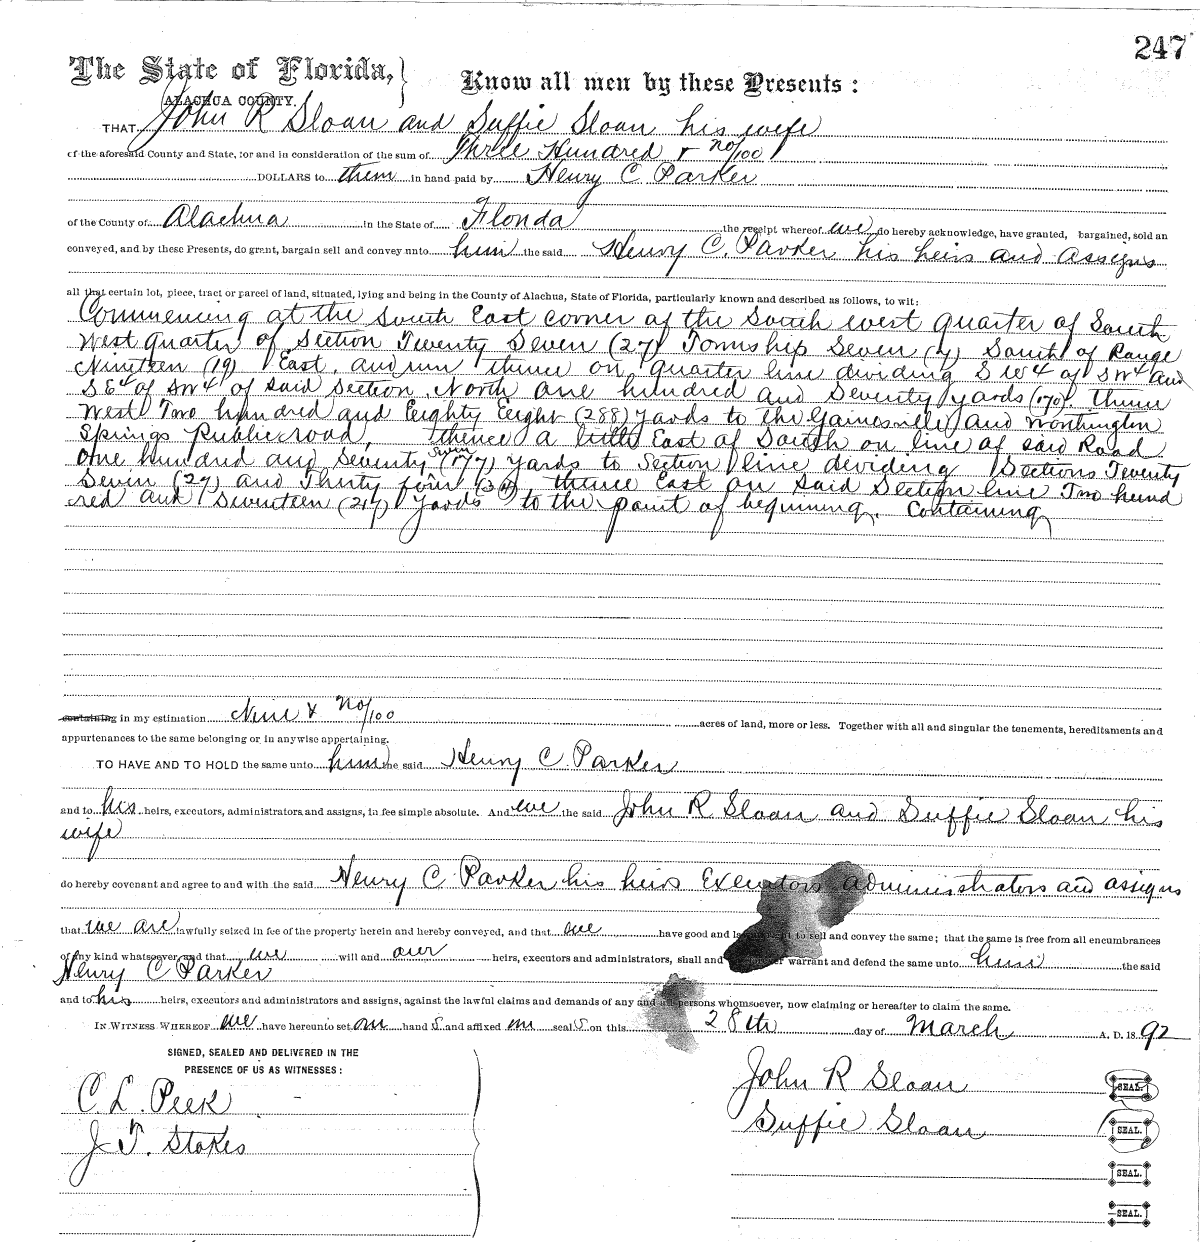 247
The State of Florida,
ALACHUA COUNTY.
Know all men by these Presents:
THAT John R Sloan and Suffie Sloan his wife
of the aforesaid County and State, for and in consideration of the sum of Three Hundred & no/100
DOLLARS to them in hand paid by Henry C Parker
of the County of Alachua in the State of Florida the receipt whereof we do hereby acknowledge, have granted, bargained, sold an
conveyed, and by these Presents, do grant, bargain sell and convey unto him the said Henry C. Parker his heirs and Assigns
all that certain lot, piece, tract or parcel of land, situated, lying and being in the County of Alachua, State of Florida, particularly known and described as follows, to wit:
Commencing at the South East corner of the South west Quarter of South
West quarter of Section Twenty Seven (27) Township Seven (7) South of Range
Nineteen (19) East, and run thence on quarter line dividing S W 4 of SW 4 and
S E 4 of SW 4 of said Section North one hundred and Seventy yards (170). thence
West Two hundred and Eighty Eight (288) yards to the Gainesville and Worthington
Springs Public road, thence a little East of South on line of said Road
One hundred and Seventy Seven (177) yards to Section line dividing Sections Twenty
Seven (27) and Thirty four (34), thence East on said Section line Two hund
red and Seventeen (217) yards to the point of beginning. Containing
containing in my estimation Nine & no/100 acres of land, more or less. Together with all and singular the tenements, hereditaments and
appurtenances to the same belonging or in anywise appertaining.
TO HAVE AND TO HOLD the same unto him the said Henry C Parker
and to his heirs, executors, administrators and assigns, in fee simple absolute. And we the said John R Sloan and Suffie Sloan his
wife
do hereby covenant and agree to and with the said Henry C Parker his heirs Executors administrators and assigns
that we are lawfully seized in fee of the property herein and hereby conveyed, and that we have good and to sell and convey the same; that the same is free from all encumbrances
of any kind whatsoever, and that we will and our heirs, executors and administrators, shall and warrant and defend the same unto him the said
Henry C Parker
and to his heirs, executors and administrators and assigns, against the lawful claims and demands of any and all persons whomsoever, now claiming or hereafter to claim the same.
IN WITNESS WHEREOF we have hereunto set our hand s and affixed our seal s on this 28th day of March A. D. 1892
SIGNED, SEALED AND DELIVERED IN THE
PRESENCE OF US AS WITNESSES:
C. L. Peek
J. T. Stokes
John R Sloan SEAL.
Suffie Sloan SEAL.
SEAL.
SEAL.